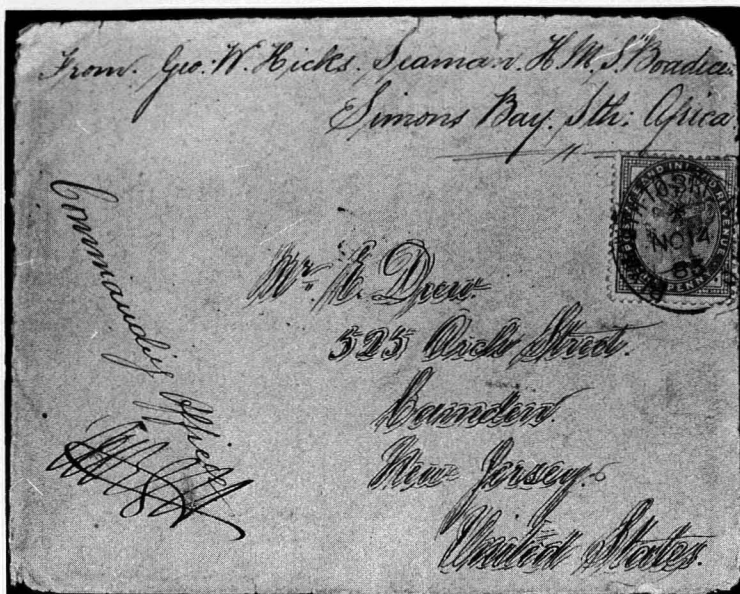 From. Geo: W. Hicks. Seaman. H.M.S. Boadicea
Simons Bay. Sth: Africa
NO 14
85
Commanding Officer
Mr. H. Drew.
525 Arch Street.
Camden.
New Jersey.
United States.